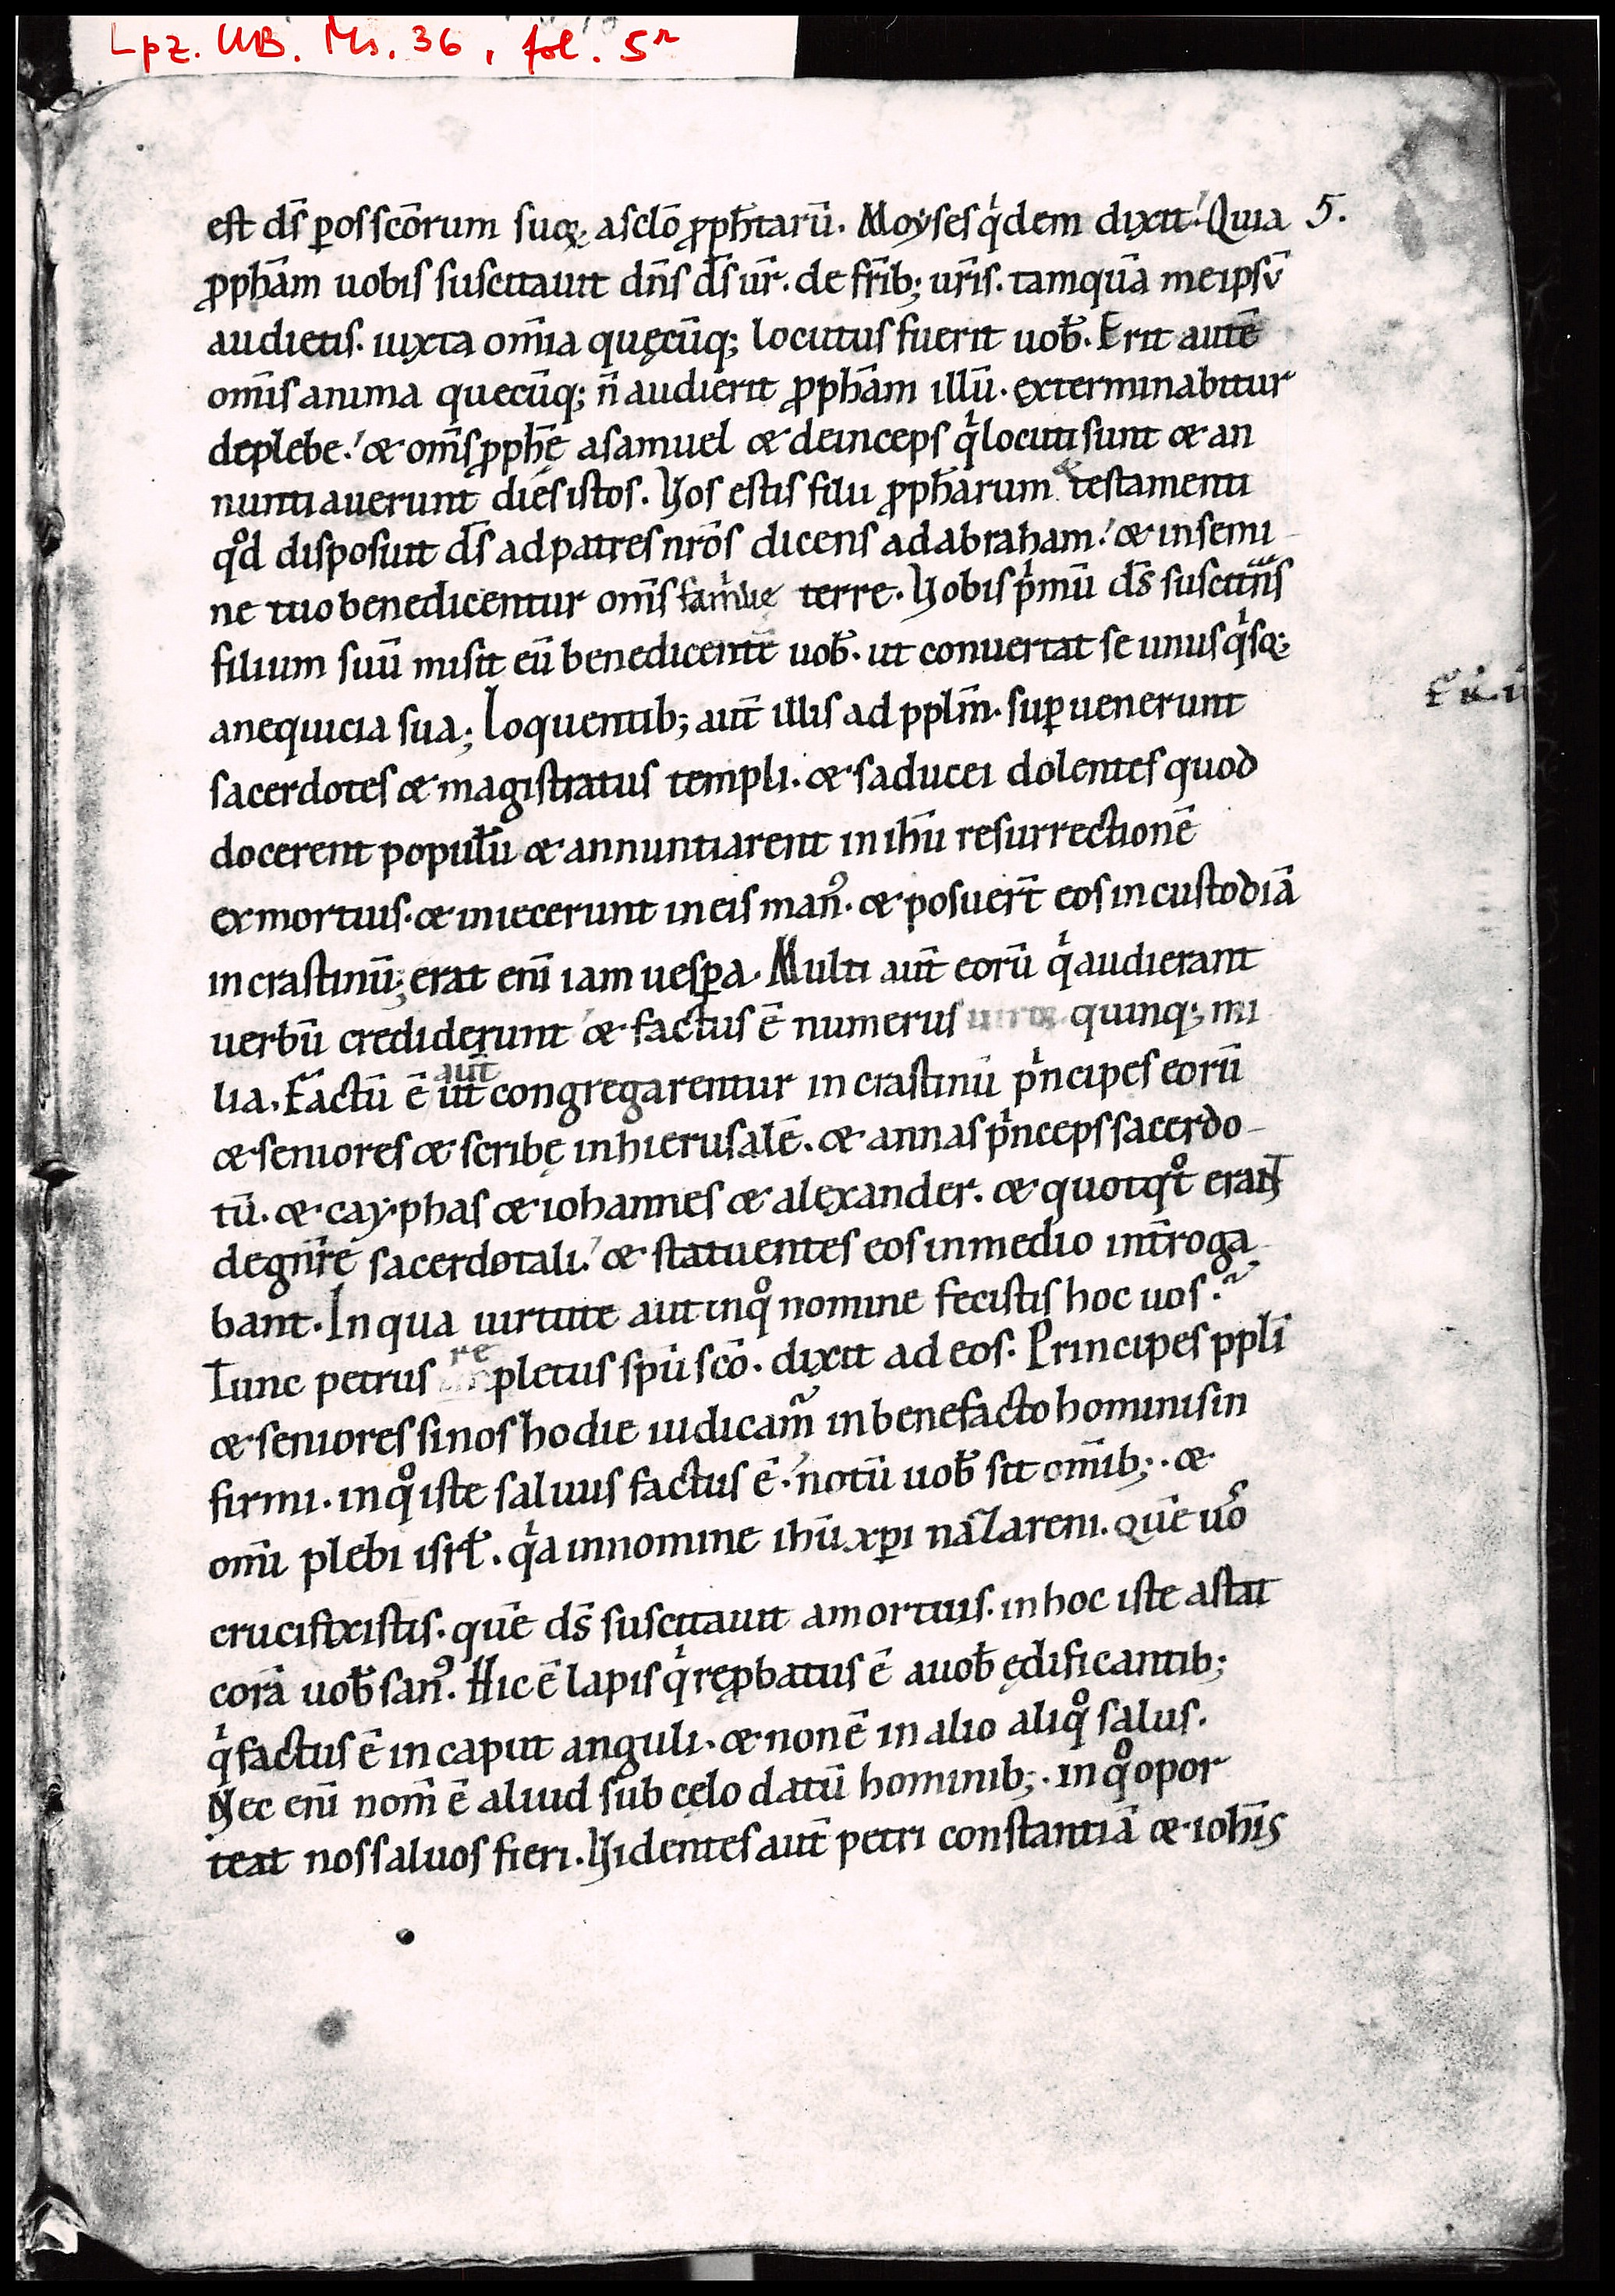 Lpz. UB. Ms. 36, fol. 5r
est ds̄ ꝑ os scōrum suoꝝ. a sclō ꝓph̄tarū. Moyses qͥdem dixit. Quia 5.
ꝓph̄am uobis suscitauit dn̄s ds̄ ur̄. de fr̄ib; ur̄is. tamquā me ipsū
audietis. iuxta om̄ia quęcūq; locutus fuerit uob̄. Erit autē
om̄is anima quecūq; n̄ audierit ꝓph̄am illū. exterminabitur
de plebe. & om̄s ꝓph̄ę a samuel & deinceps qͥ locuti sunt & an
nuntiauerunt dies istos. Vos estis filii ꝓph̄arum & testamenti
qͦd disposuit ds̄ ad patres nr̄os dicens ad abraham. & in semi
ne tuo benedicentur om̄s familię terre. Vobis pͥmū ds̄ suscitans
filium suū misit eū benedicentē uob̄. ut conuertat se unusqͥsq;
a nequicia sua; Loquentib; aut̄ illis ad pplm̄. suꝑuenerunt
sacerdotes & magistratus templi. & saducei dolentes quod
docerent populū & annuntiarent in ih̄u resurrectionē
ex mortuis. & iniecerunt in eis man⁹. & posuer̄t eos in custodiā
in crastinū; erat eni̅ iam uesꝑa. Multi aut̄ eorū qͥ audierant
uerbū crediderunt & factus ē numerus uiroꝝ quinq; mi
lia. Factū ē aut̄ ut congregarentur in crastinū pͥncipes eorū
& seniores & scribę in hierusalē. & annas pͥnceps sacerdo-
tū. & cayphas & iohannes & alexander. & quotqͦt erant
de gn̄re sacerdotali. & statuentes eos in medio int̄roga
bant. In qua uirtute aut in qͦ nomine fecistis hoc uos?
Tunc petrus repletus sp̄u scō. dixit ad eos. Principes ppli̅
& seniores si nos hodie iudicam̃ in benefacto hominis in
firmi. in qͦ iste saluus factus ē. notū uob̄ sit om̄ib;. &
om̄i plebi isrł. qͥa in nomine ih̄u xp̄i nazareni. quē uos
crucifixistis. quē ds̄ suscitauit a mortuis. in hoc iste astat
corā uob̄ san⁹. Hic ē lapis qͥ reꝓbatus ē a uob̄ ędificantib;
qͥ factus ē in caput anguli. & non ē in alio aliqͦ salus.
Nec eni̅ nom̄ ē aliud sub celo datū hominib;. in qͦ opor
teat nos saluos fieri. Videntes aut̄ petri constantiā & ioh̄is